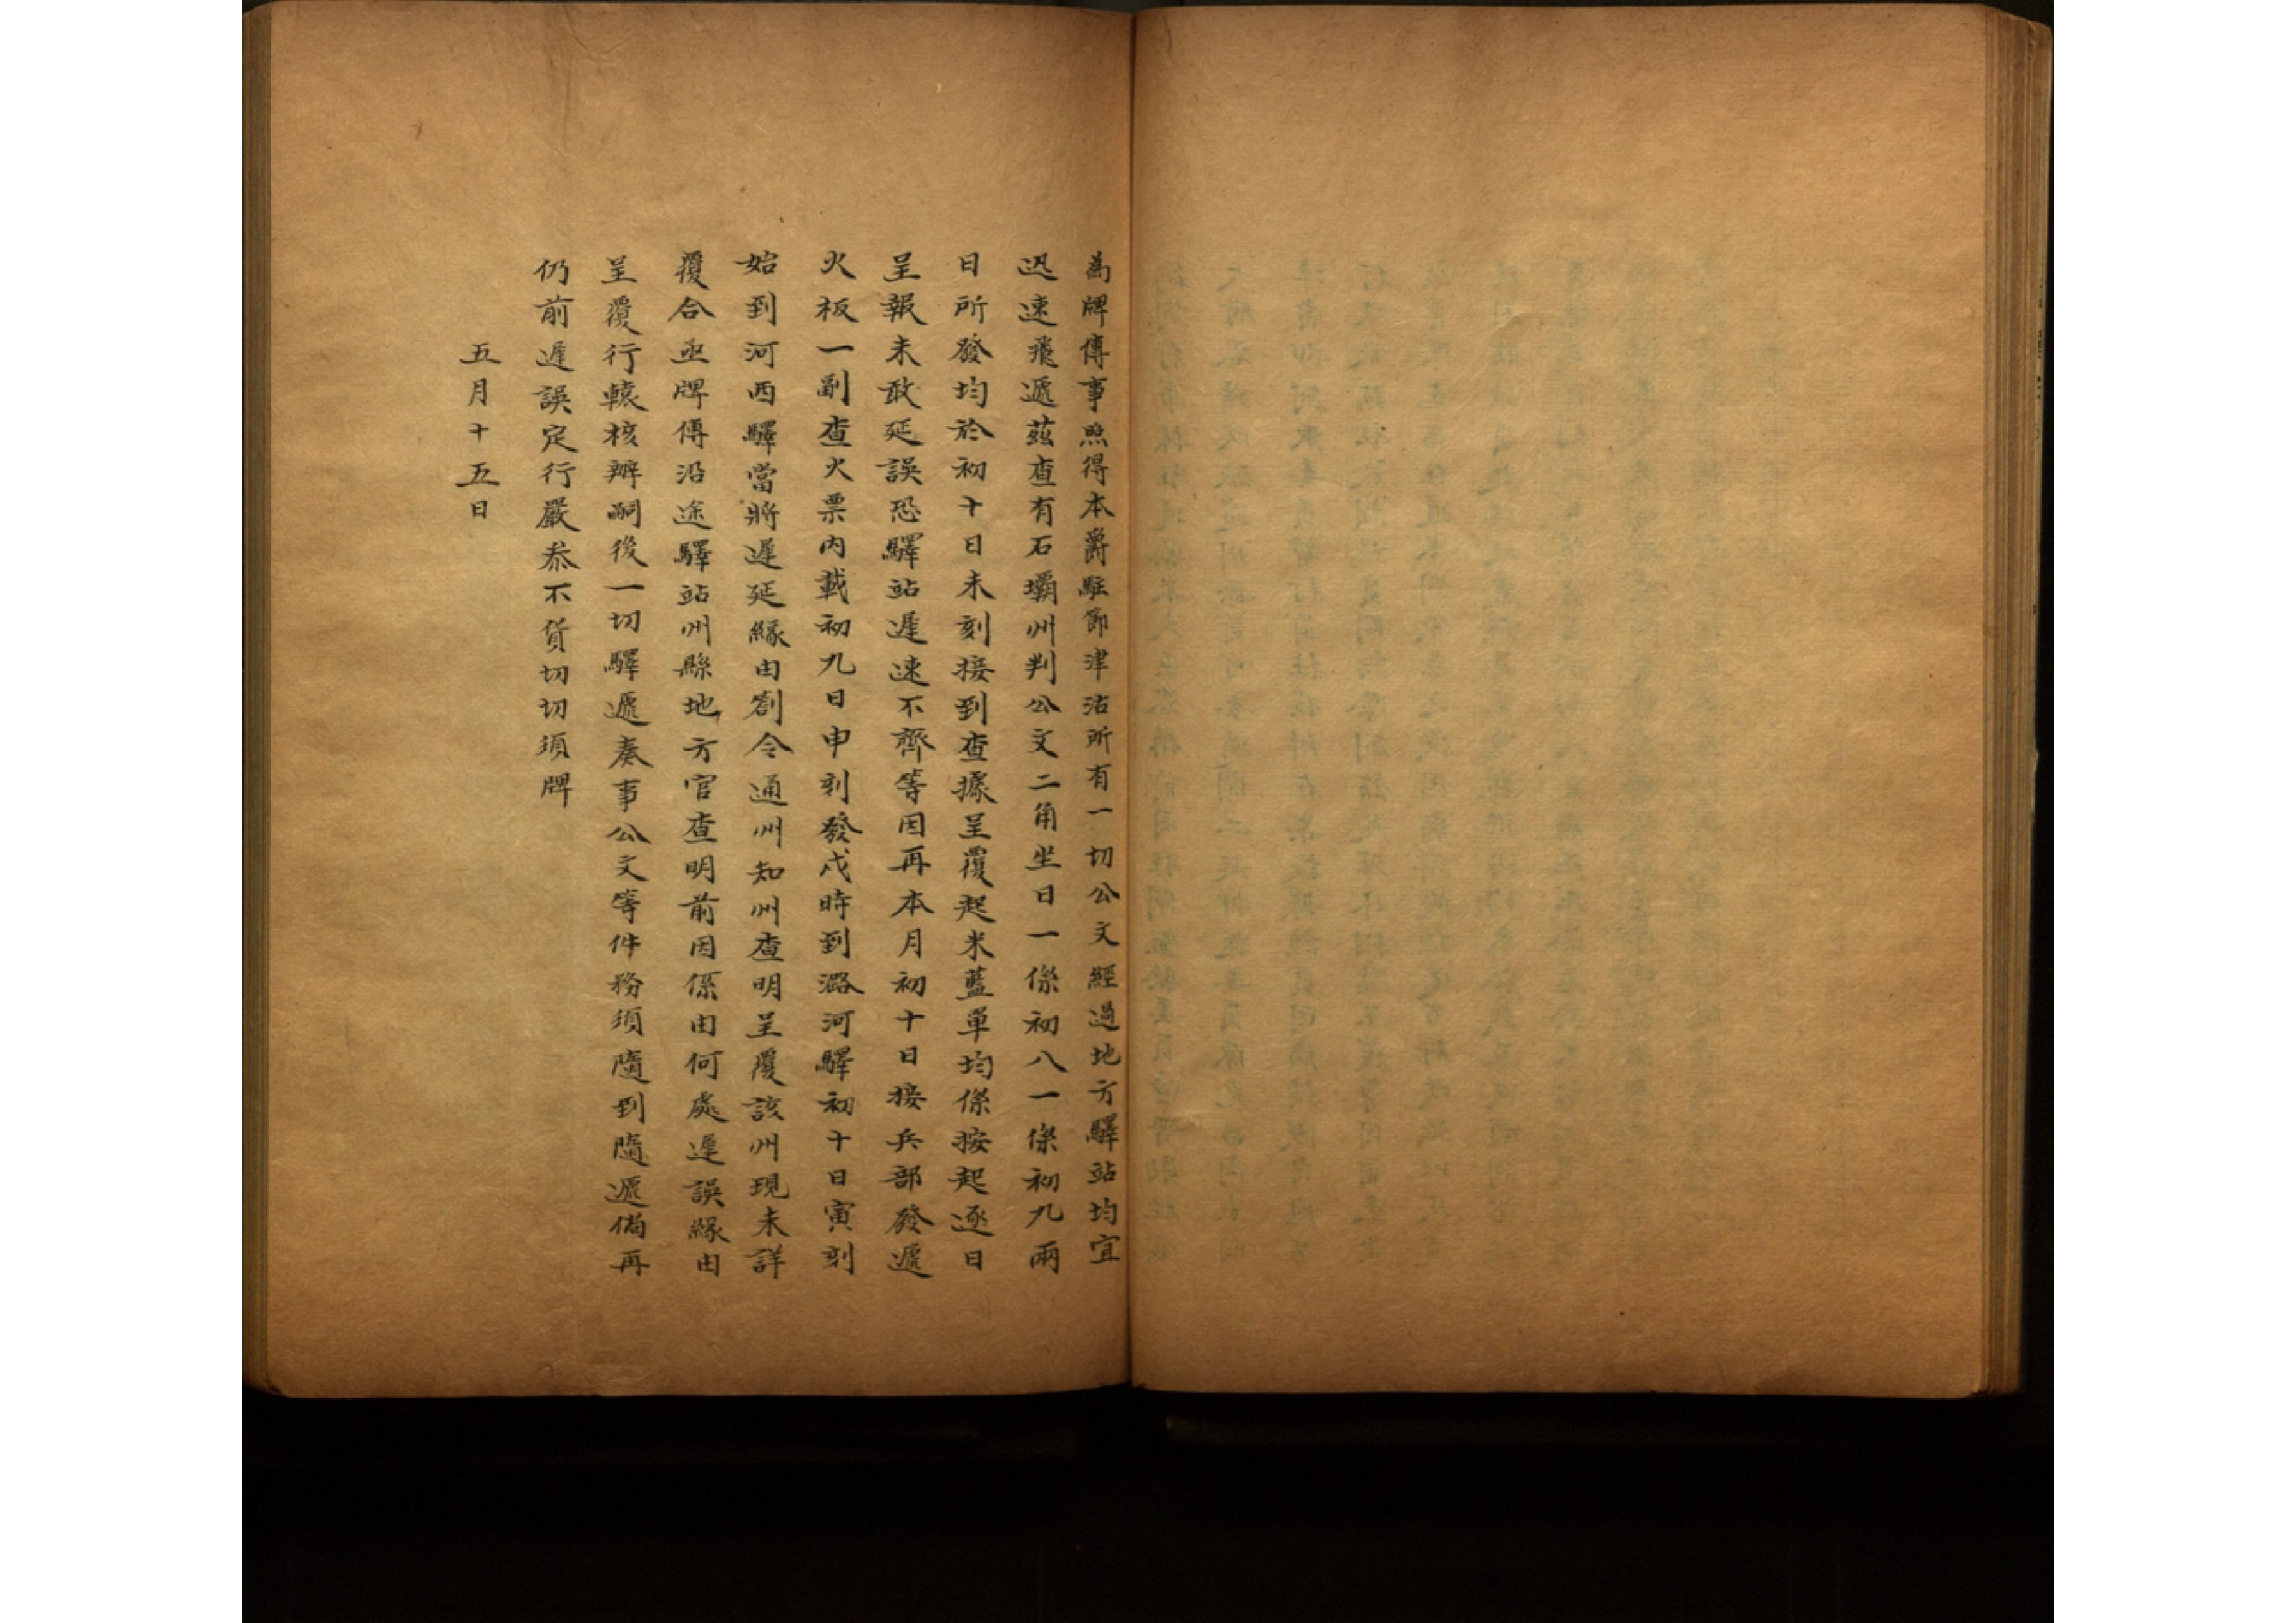 為牌傳事照得本爵駐節津沽所有一切公文經過地方驛站均宜
迅速飛遞茲查有石壩州判公文二角坐日一係初八一係初九兩
日所發均於初十日未刻接到查據呈覆起米藍單均係按起逐日
呈報未敢延誤恐驛站遲速不齊等因再本月初十日接兵部發遞
火板一副查火票內載初九日申刻發戌時到潞河驛初十日寅刻
始到河西驛當將遲延緣由劄令通州知州查明呈覆該州現未詳
覆合亟牌傳沿途驛站州縣地方官查明前因係由何處遲誤緣由
呈覆行轅核辦嗣後一切驛遞奏事公文等件務須隨到隨遞倘再
仍前遲誤定行嚴叅不貸切切須牌
五月十五日